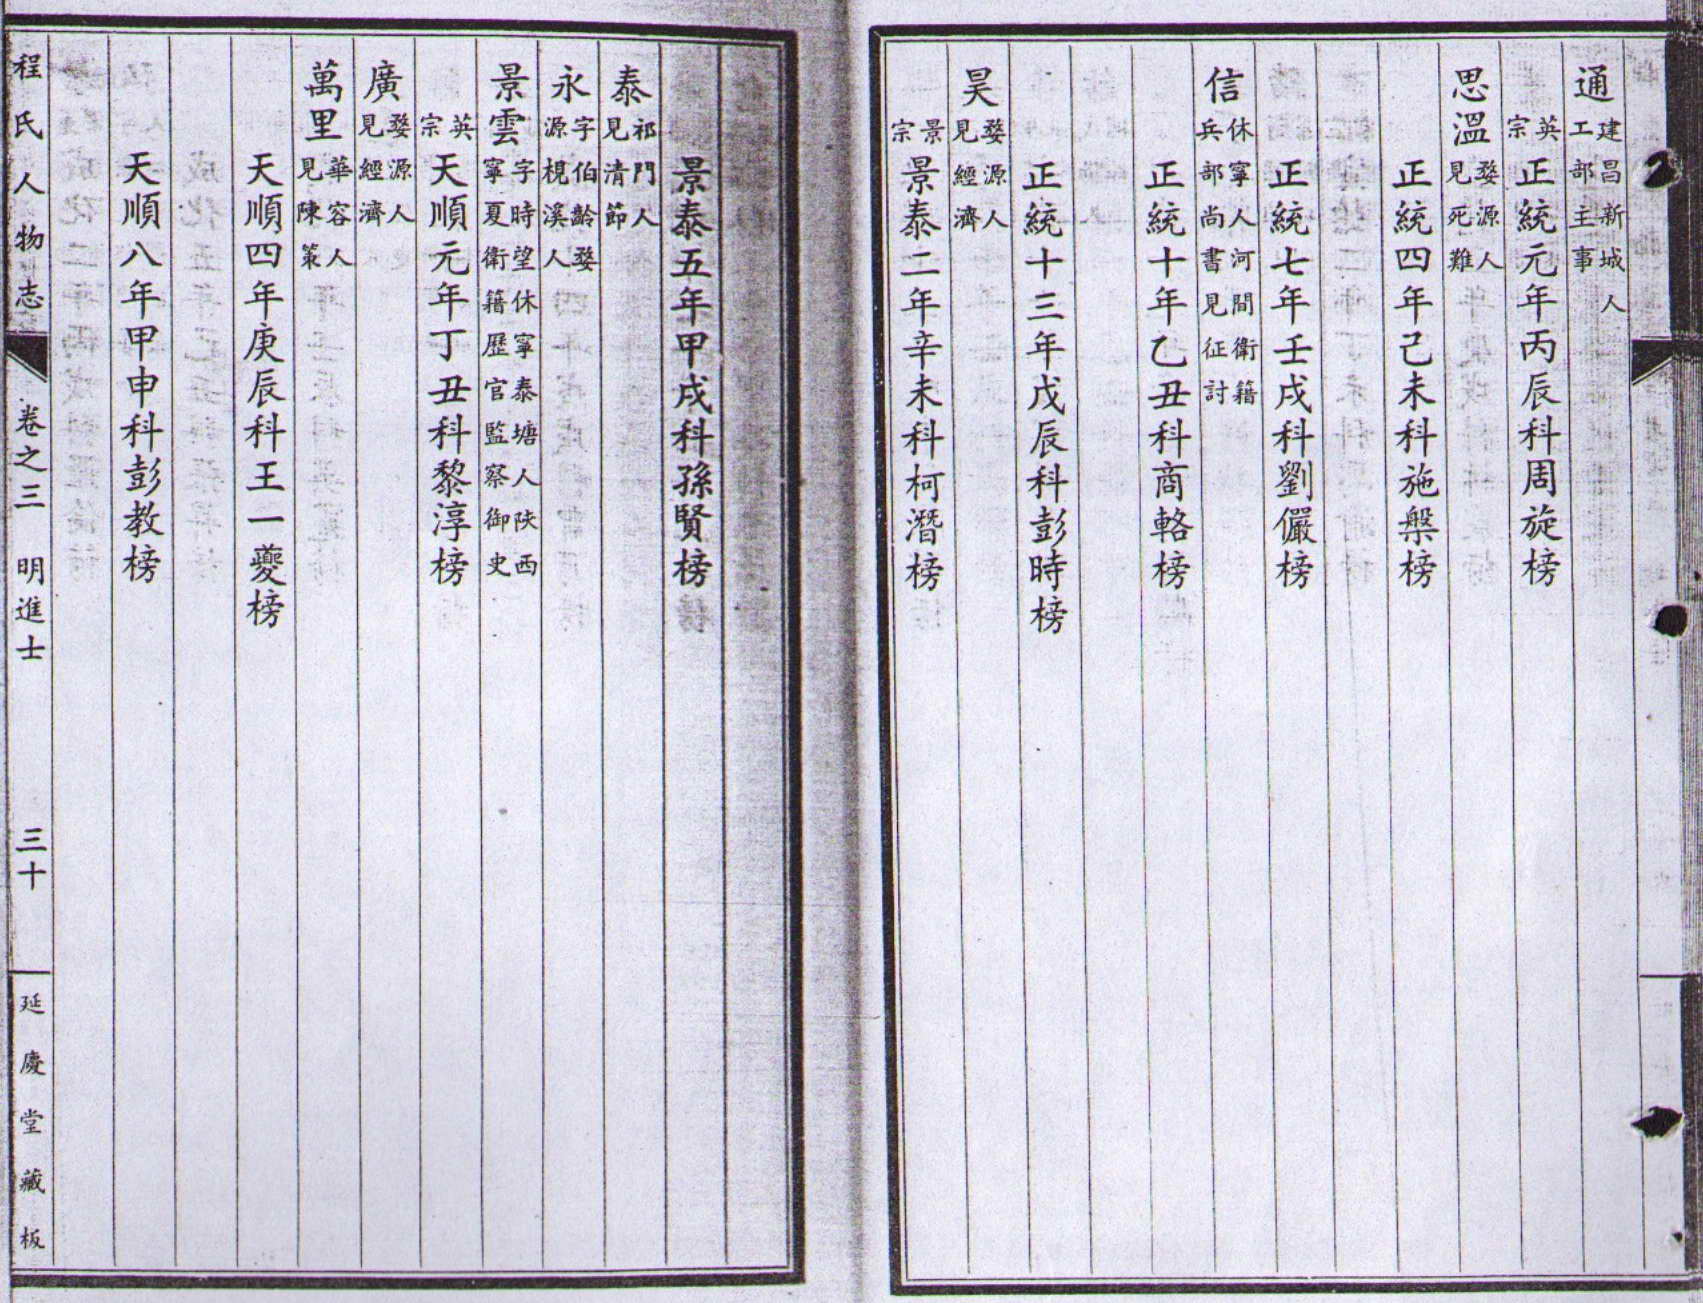 通 建昌新城人
工部主事
英宗 正統元年丙辰科周旋榜
思溫 婺源人
見死難
正統四年己未科施槃榜
正統七年壬戌科劉儼榜
信 休寧人河間衛籍
兵部尚書見征討
正統十年乙丑科商輅榜
正統十三年戊辰科彭時榜
昊 婺源人
見經濟
景宗 景泰二年辛未科柯潛榜
景泰五年甲戌科孫賢榜
泰 祁門人
見清節
永 字伯齡婺
源梘溪人
景雲 字時望休寧泰塘人陝西
寧夏衛籍歷官監察御史
英宗 天順元年丁丑科黎淳榜
廣 婺源人
見經濟
萬里 華容人
見陳策
天順四年庚辰科王一夔榜
天順八年甲申科彭教榜
程氏人物志 卷之三 明進士 三十 延慶堂藏板